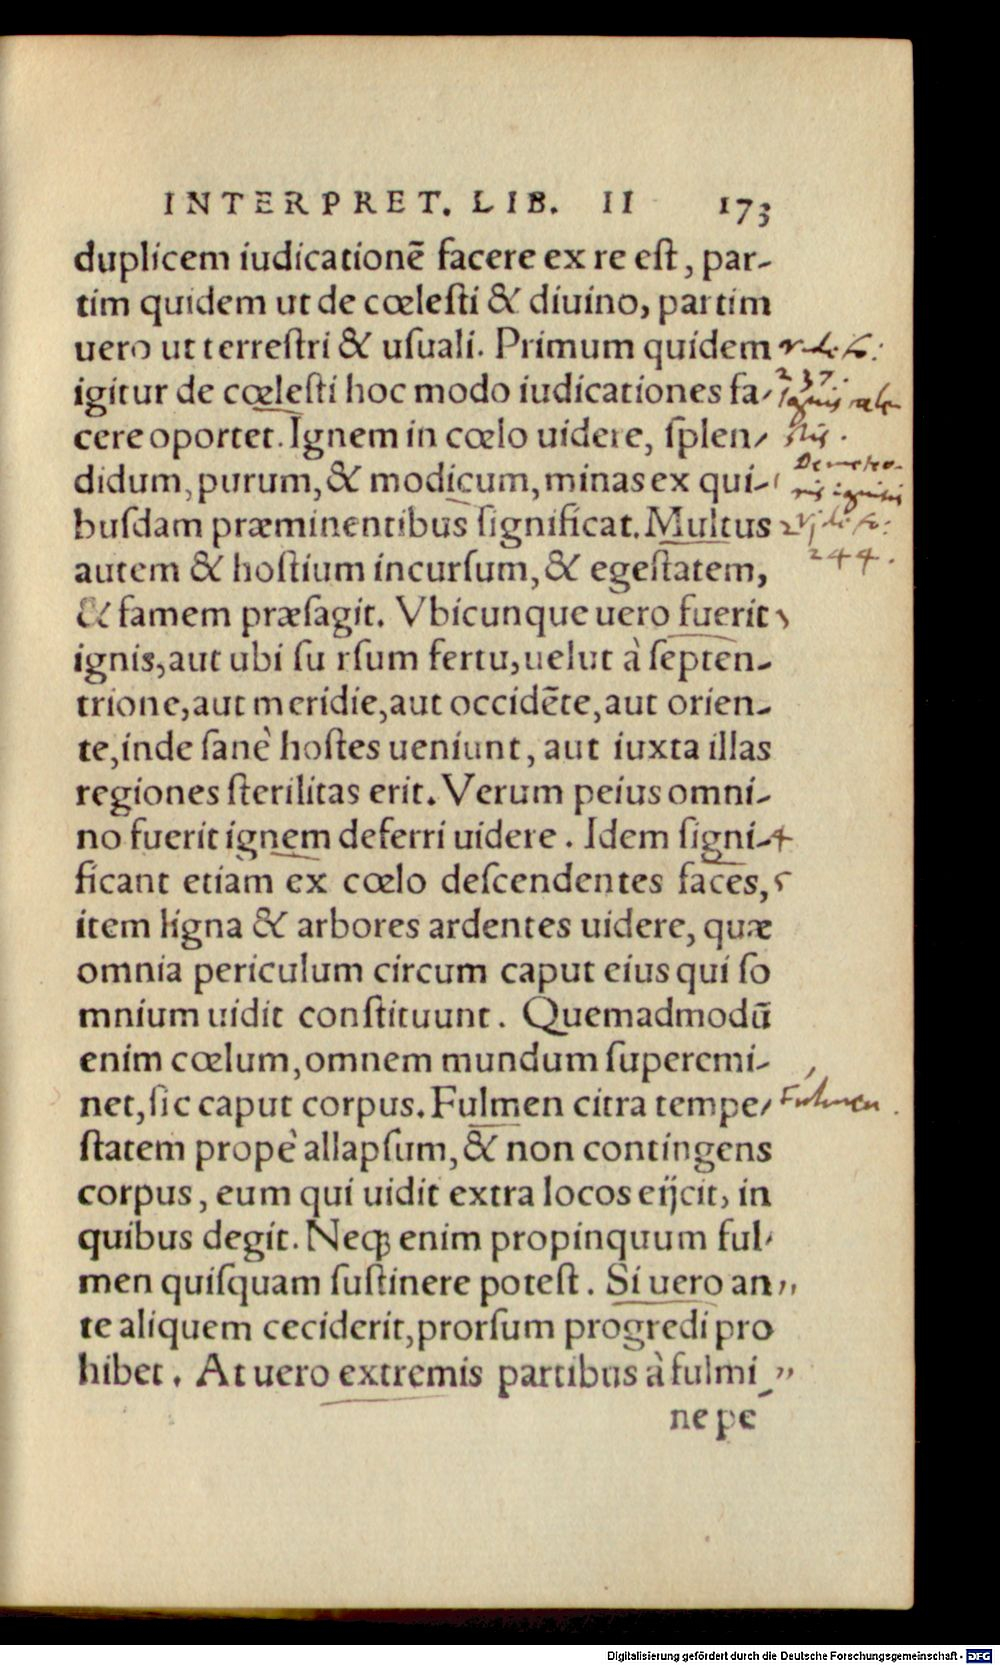 INTERPRET. LIB. II 173
duplicem iudicationē facere ex re est, par-
tim quidem ut de cœlesti & diuino, partim
uero ut terrestri & usuali. Primum quidem
igitur de cœlesti hoc modo iudicationes fa-
237.
Ignis cœle-
cere oportet. Ignem in cœlo uidere, splen-
stis.
didum, purum, & modicum, minas ex qui-
busdam præminentibus significat. Multus
autem & hostium incursum, & egestatem,
244.
& famem præsagit. Vbicunque uero fuerit
ignis, aut ubi su rsum fertu, uelut à septen-
trione, aut meridie, aut occidēte, aut orien-
te, inde sanè hostes ueniunt, aut iuxta illas
regiones sterilitas erit. Verum peius omni-
no fuerit ignem deferri uidere. Idem signi- 4
ficant etiam ex cœlo descendentes faces, 5
item ligna & arbores ardentes uidere, quæ
omnia periculum circum caput eius qui so
mnium uidit constituunt. Quemadmodū
enim cœlum, omnem mundum superemi-
net, sic caput corpus. Fulmen citra tempe- Fulmen.
statem propè allapsum, & non contingens
corpus, eum qui uidit extra locos eijcit, in
quibus degit. Neq; enim propinquum ful-
men quisquam sustinere potest. Si uero an
te aliquem ceciderit, prorsum progredi pro
hibet. At uero extremis partibus à fulmi
ne pe
Digitalisierung gefördert durch die Deutsche Forschungsgemeinschaft - DFG